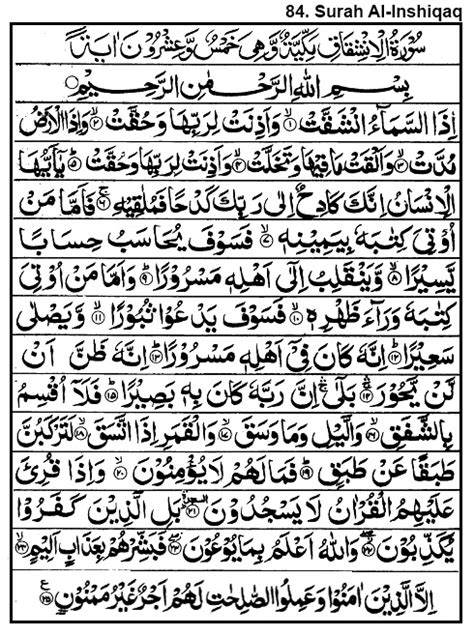 84. Surah Al-Inshiqaq
سُوْرَةُ الْاِنْشِقَاقِ مَكِّيَّةٌ وَّهِيَ خَمْسٌ وَّعِشْرُوْنَ اٰيَةً
بِسْمِ اللّٰهِ الرَّحْمٰنِ الرَّحِيْمِ
اِذَا السَّمَآءُ انْشَقَّتْ ۙ﴿۱﴾ وَاَذِنَتْ لِرَبِّهَا وَحُقَّتْ ۙ﴿۲﴾ وَاِذَا الْاَرْضُ
مُدَّتْ ۙ﴿۳﴾ وَاَلْقَتْ مَا فِيْهَا وَتَخَلَّتْ ۙ﴿۴﴾ وَاَذِنَتْ لِرَبِّهَا وَحُقَّتْ ؕ﴿۵﴾ يٰۤاَيُّهَا
الْاِنْسَانُ اِنَّكَ كَادِحٌ اِلٰى رَبِّكَ كَدْحًا فَمُلٰقِيْهِ ۚ﴿۶﴾ فَاَمَّا مَنْ
اُوْتِيَ كِتٰبَهٗ بِيَمِيْنِهٖ ۙ﴿۷﴾ فَسَوْفَ يُحَاسَبُ حِسَابًا
يَّسِيْرًا ۙ﴿۸﴾ وَّيَنْقَلِبُ اِلٰۤى اَهْلِهٖ مَسْرُوْرًا ؕ﴿۹﴾ وَاَمَّا مَنْ اُوْتِيَ
كِتٰبَهٗ وَرَآءَ ظَهْرِهٖ ۙ﴿۱۰﴾ فَسَوْفَ يَدْعُوْا ثُبُوْرًا ۙ﴿۱۱﴾ وَّيَصْلٰى
سَعِيْرًا ؕ﴿۱۲﴾ اِنَّهٗ كَانَ فِيْۤ اَهْلِهٖ مَسْرُوْرًا ؕ﴿۱۳﴾ اِنَّهٗ ظَنَّ اَنْ
لَّنْ يَّحُوْرَ ۚ﴿۱۴﴾ بَلٰۤى ۚ اِنَّ رَبَّهٗ كَانَ بِهٖ بَصِيْرًا ؕ﴿۱۵﴾ فَلَاۤ اُقْسِمُ
بِالشَّفَقِ ۙ﴿۱۶﴾ وَالَّيْلِ وَمَا وَسَقَ ۙ﴿۱۷﴾ وَالْقَمَرِ اِذَا اتَّسَقَ ۙ﴿۱۸﴾ لَتَرْكَبُنَّ
طَبَقًا عَنْ طَبَقٍ ؕ﴿۱۹﴾ فَمَا لَهُمْ لَا يُؤْمِنُوْنَ ۙ﴿۲۰﴾ وَاِذَا قُرِئَ
عَلَيْهِمُ الْقُرْاٰنُ لَا يَسْجُدُوْنَ ؕ﴿۲۱﴾ بَلِ الَّذِيْنَ كَفَرُوْا
يُكَذِّبُوْنَ ۖ﴿۲۲﴾ وَاللّٰهُ اَعْلَمُ بِمَا يُوْعُوْنَ ۖ﴿۲۳﴾ فَبَشِّرْهُمْ بِعَذَابٍ اَلِيْمٍ ۙ﴿۲۴﴾
اِلَّا الَّذِيْنَ اٰمَنُوْا وَعَمِلُوا الصّٰلِحٰتِ لَهُمْ اَجْرٌ غَيْرُ مَمْنُوْنٍ ﴿۲۵﴾